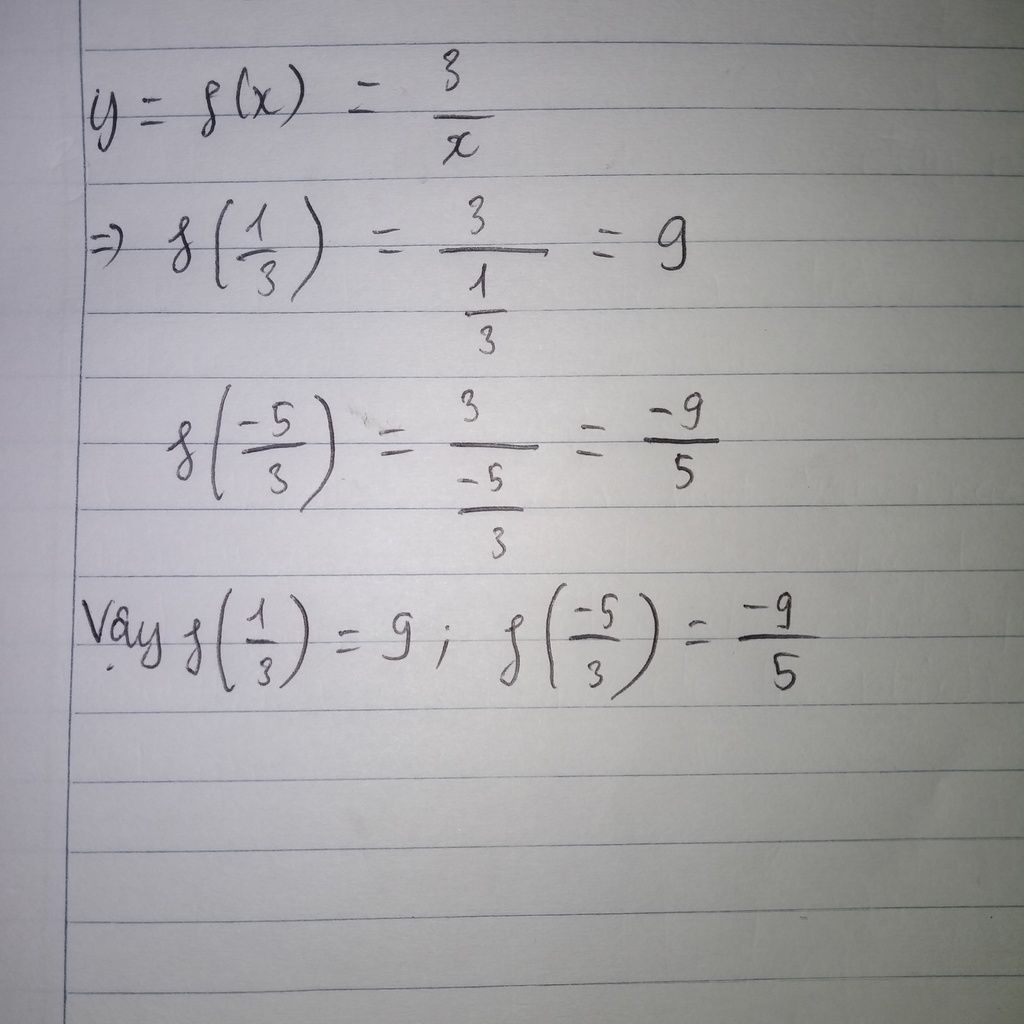 y = f(x) = 3/x
⇒ f(1/3) = 3/(1/3) = 9
f(-5/3) = 3/(-5/3) = -9/5
Vậy f(1/3) = 9 ; f(-5/3) = -9/5